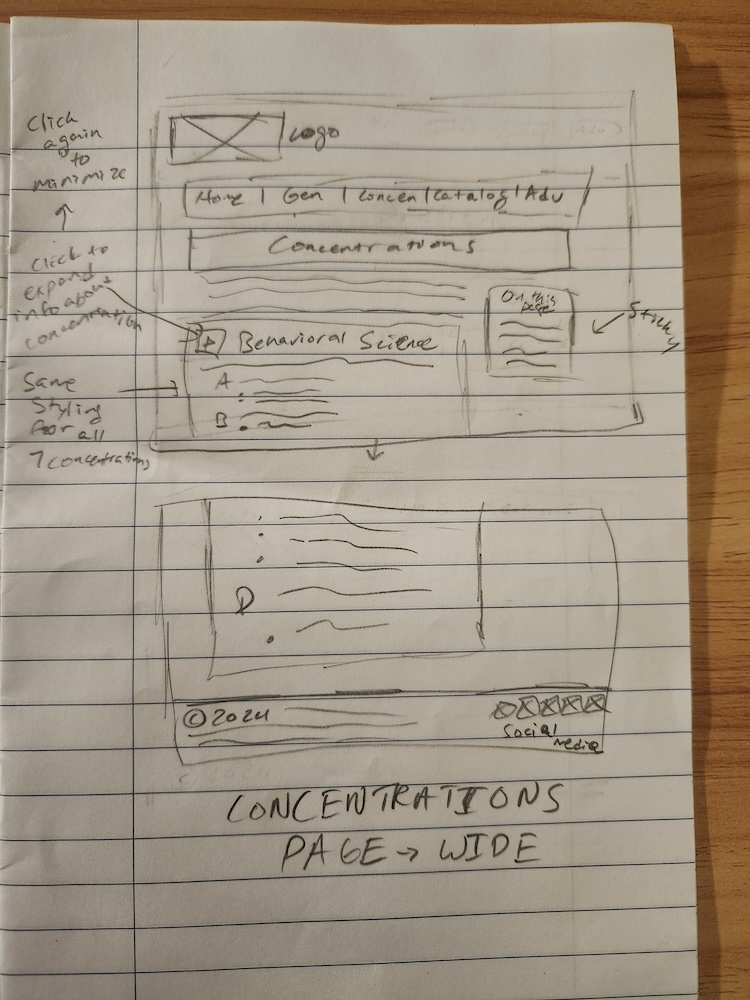 Click
again
to
minimize
Click to
expand
info about
concentration
Same
Styling
for all
7 concentrations
Logo
Home | Gen | Concen | Catalog | Adv
Concentrations
On this
page
Sticky
+ Behavioral Science
A
B
D
©2024
Social
Media
CONCENTRATIONS
PAGE → WIDE